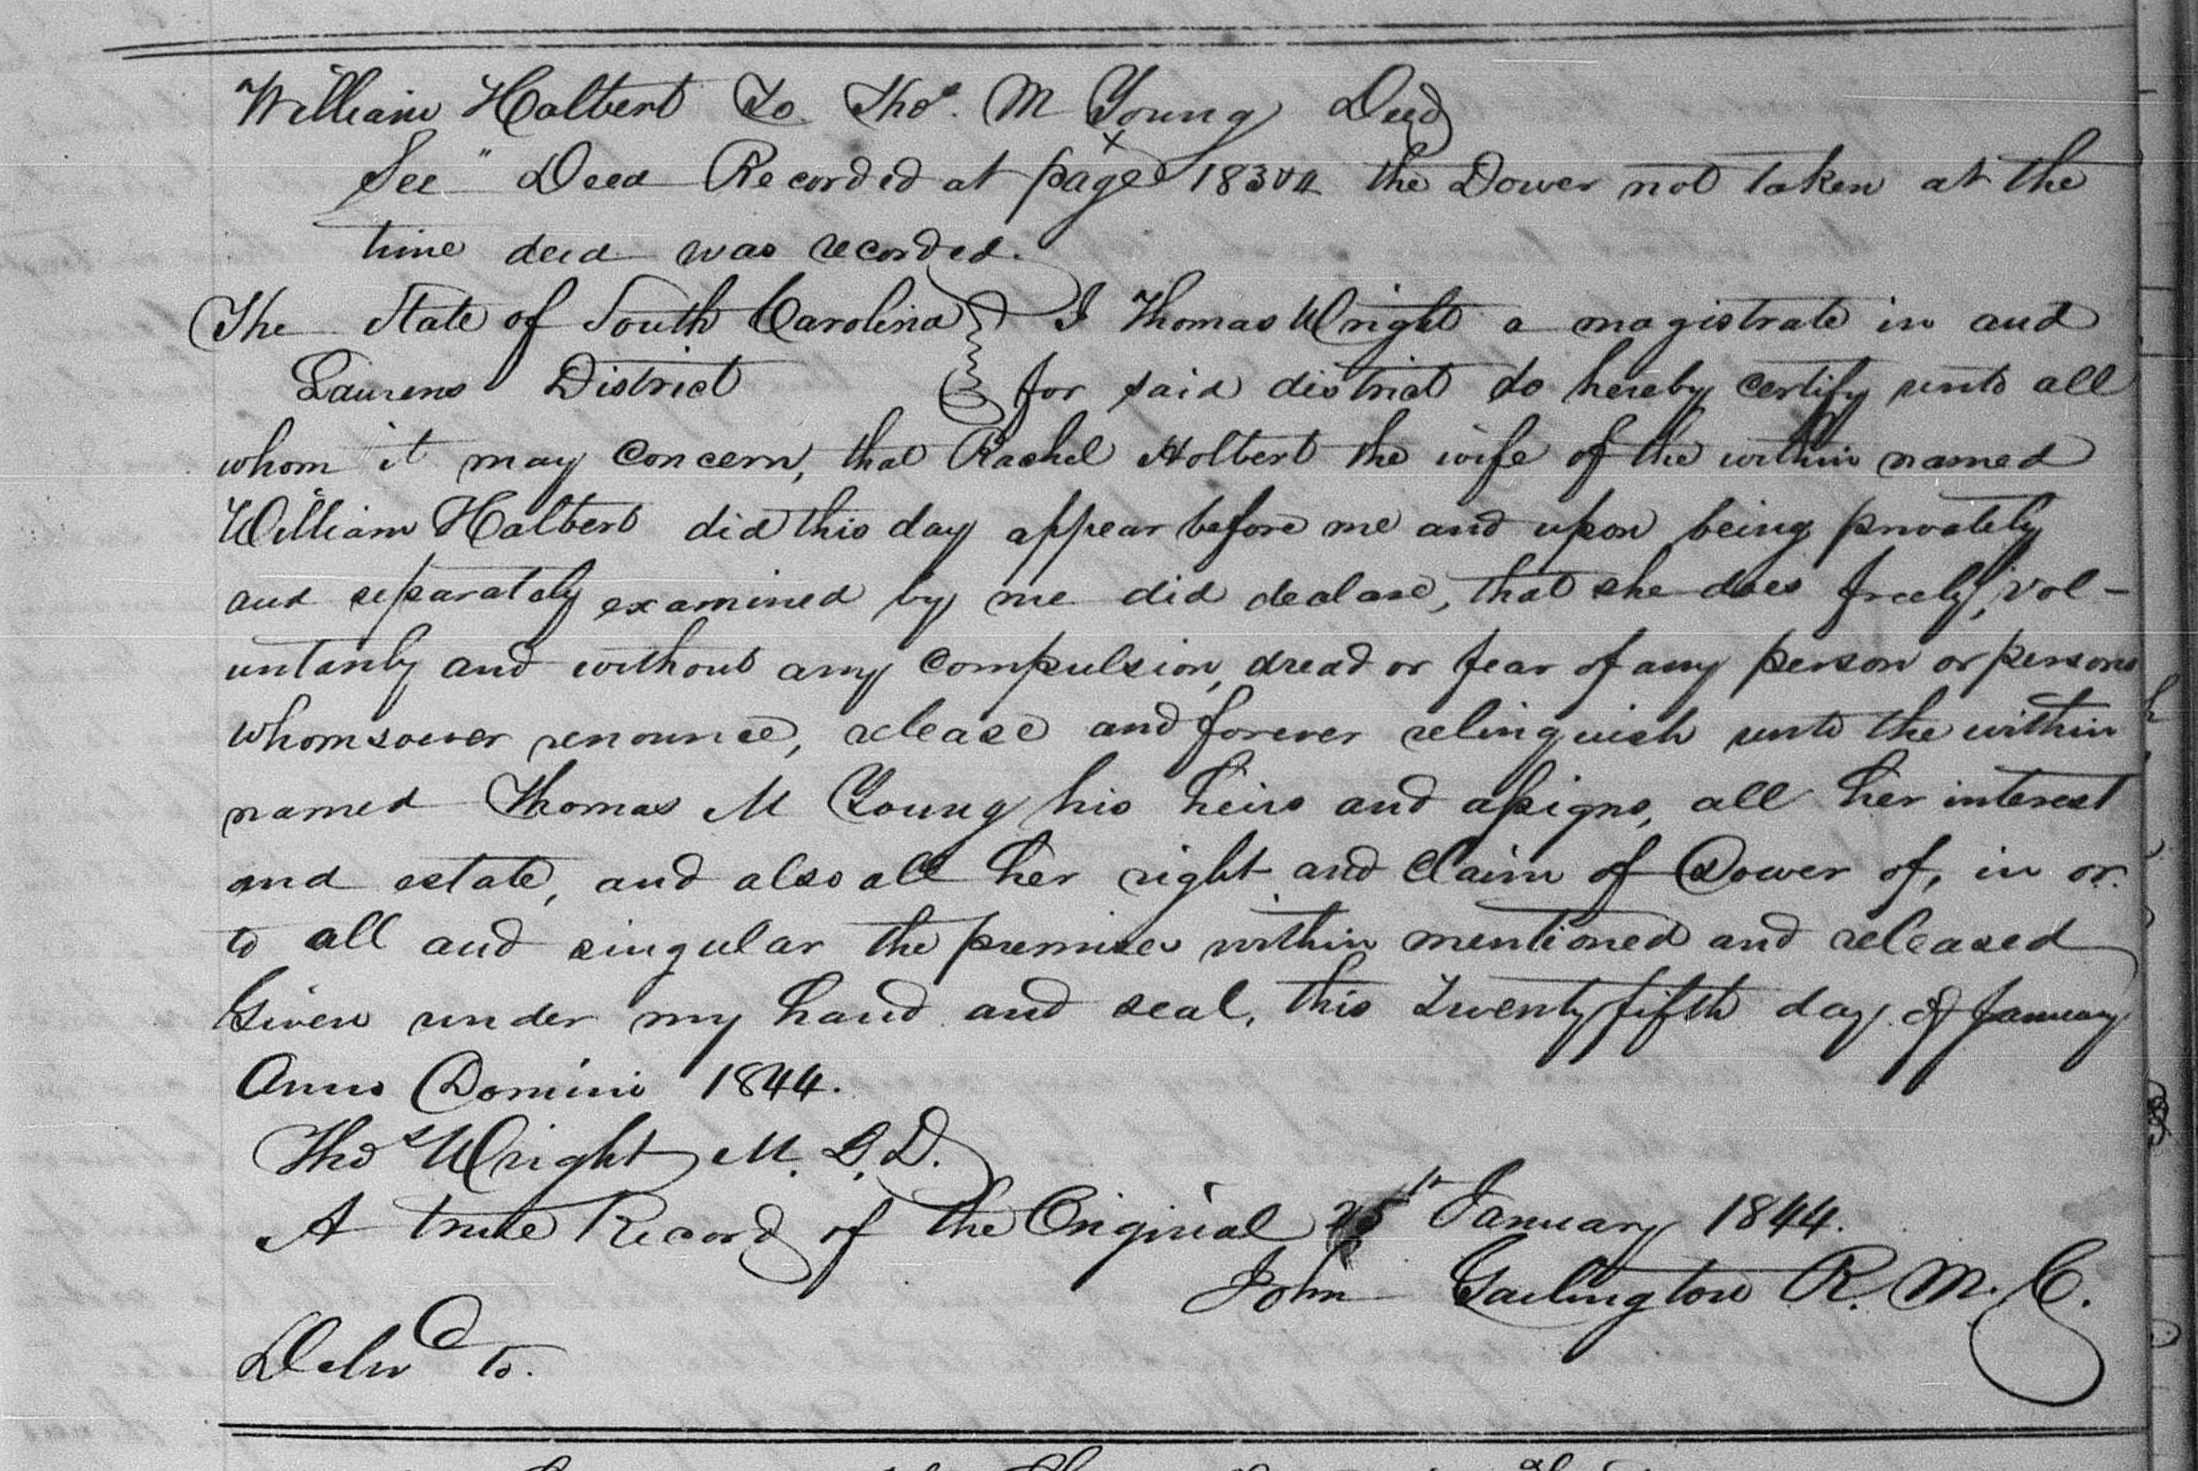 William Halbert To Thos. M Young Deed
See " Deed Recorded at page the Dower not taken at the
time deed was recorded.
The State of South Carolina I Thomas Wright a magistrate in and
Laurens District for said district do hereby certify unto all
whom it may Concern, that Rachel Holbert the wife of the within named
William Halbert did this day appear before me and upon being privately
and separately examined by me did declare, that she does freely, vol-
untarily and without any Compulsion, dread or fear of any person or persons
whomsoever renounce, release and forever relinquish unto the within
named Thomas M Young his heirs and assigns, all her interest
and estate, and also all her right and Claim of Dower of, in or
to all and singular the premises within mentioned and released
Given under my hand and seal, this twenty fifth day of January
Anno Domini 1844.
Thos Wright M. L. D.
A true Record of the Original 25th January 1844.
John Garlington R. M. C.
Delvd to.